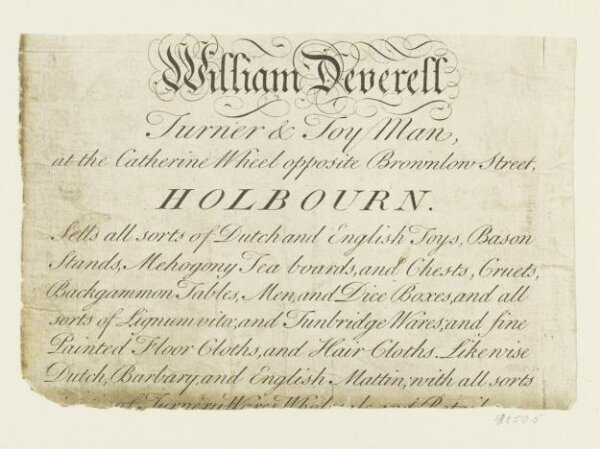 William Deverell
Turner & Toy Man,
at the Catherine Wheel opposite Brownlow Street,
HOLBOURN.
Sells all sorts of Dutch and English Toys, Bason
Stands, Mehogony Tea boards, and Chests, Cruets,
Backgammon Tables, Men, and Dice Boxes, and all
sorts of Lignum vitæ, and Tunbridge Wares; and fine
Painted Floor Cloths, and Hair Cloths. Likewise
Dutch, Barbary, and English Mattin, with all sorts
of Turnery Wares Wholesale and Retail